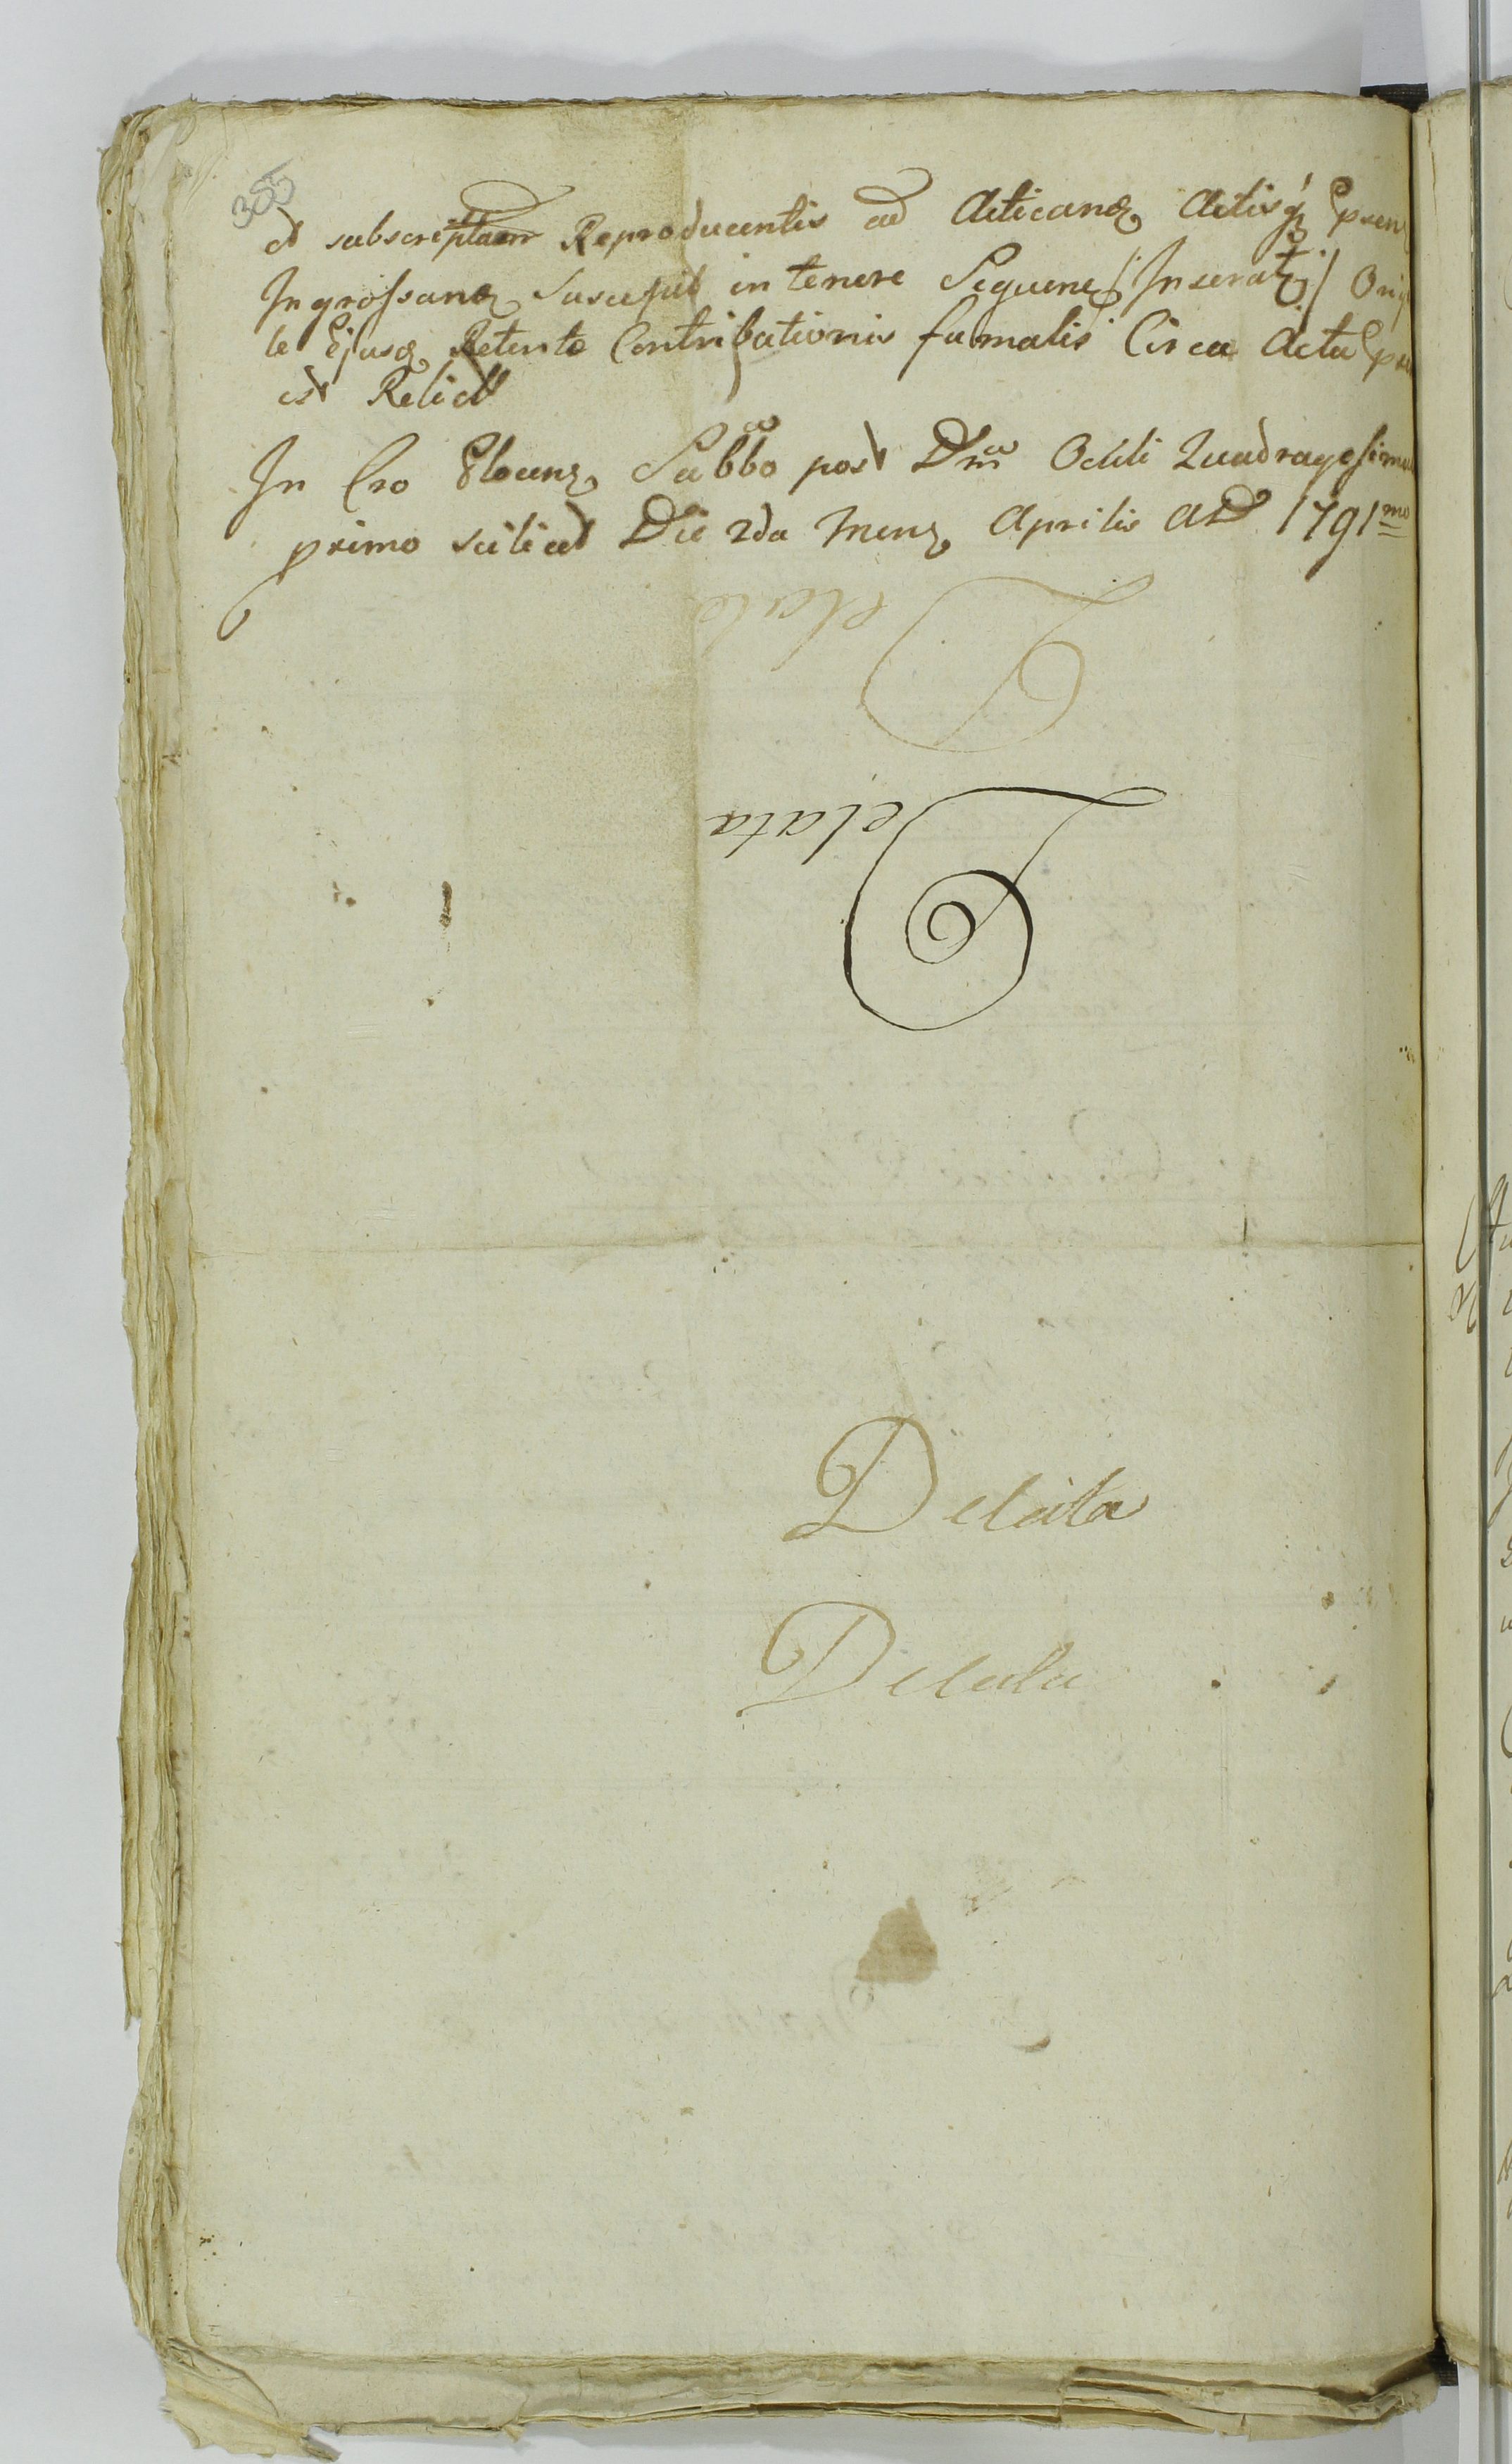 305
et subscriptaem Reproducentis ad Acticand Actisq psen
Ingrossand Suscepit in tenore Sequenti /: Inseratur :/ Orig
le Ejusd Retento Contributionis fumalis Circa Acta
est Relict
In Cro Sabbo post Dm Oculi Quadragesimal
primo scilicet Die 2da Mens Aprilis AD 1791mo
Delata
Delata
Delata
Delata